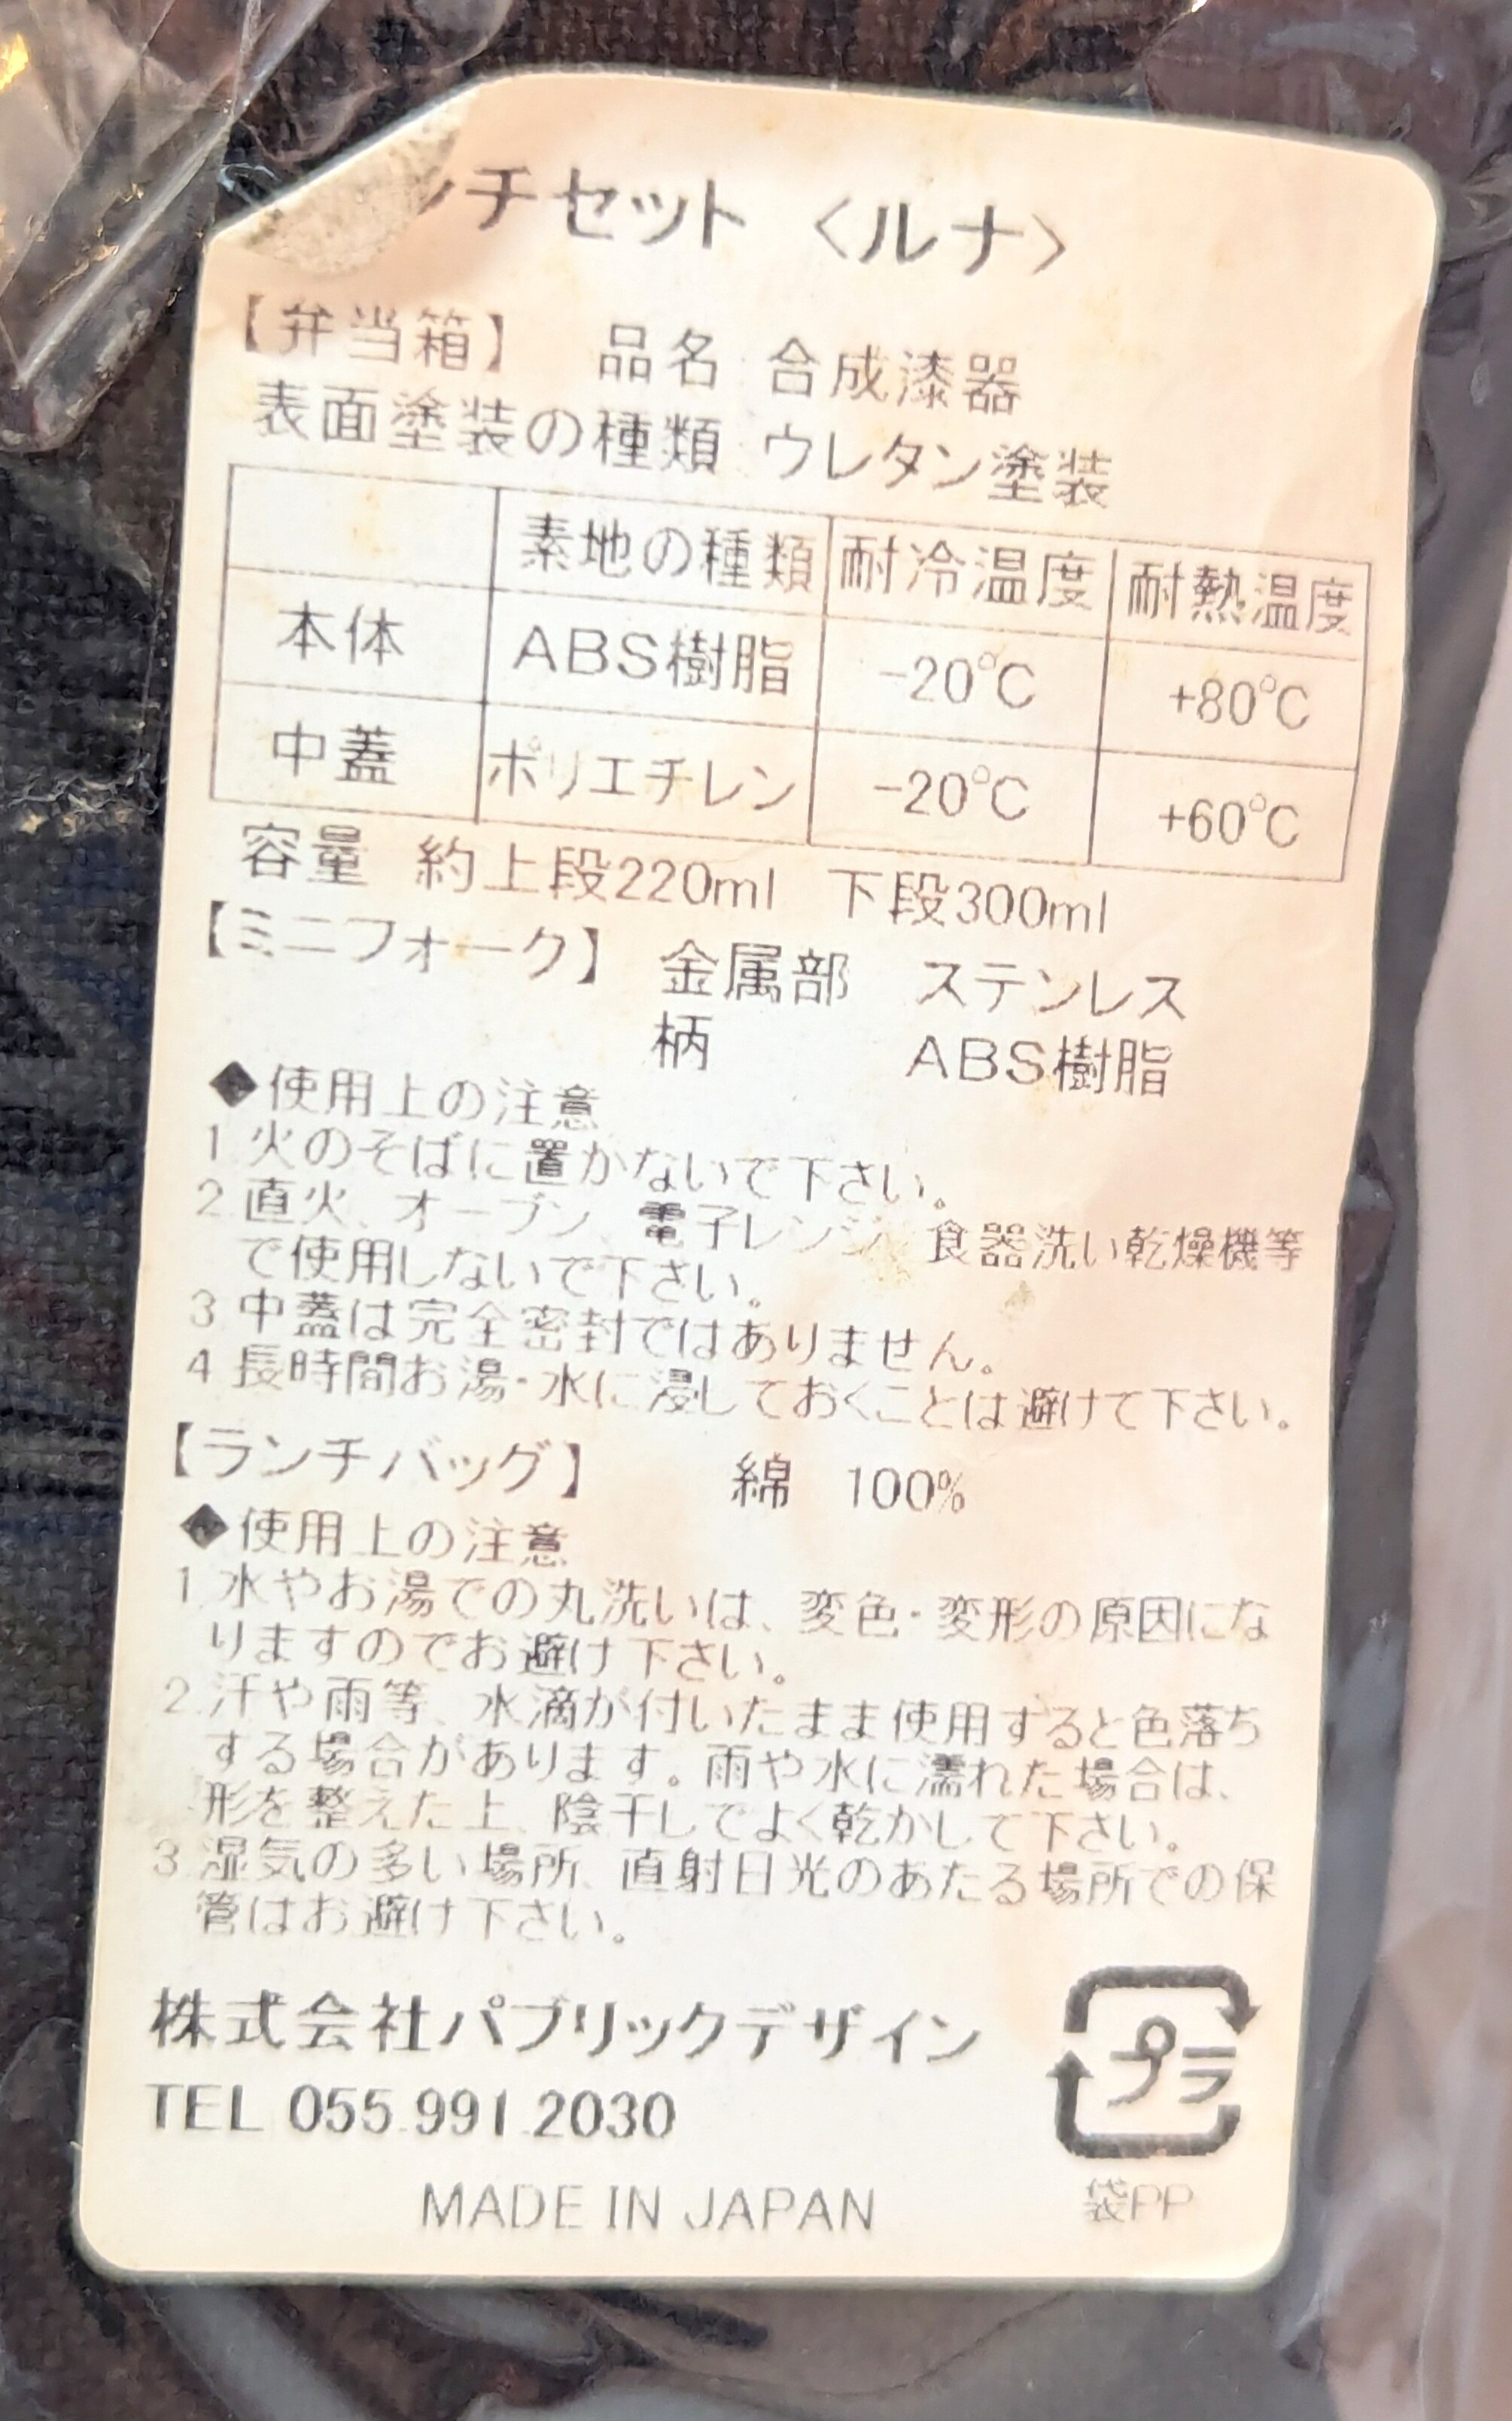 ンチセット 〈ルナ〉
【弁当箱】 品名 合成漆器
表面塗装の種類 ウレタン塗装
素地の種類 耐冷温度 耐熱温度
本体 ABS樹脂 -20℃ +80℃
中蓋 ポリエチレン -20℃ +60℃
容量 約上段220ml 下段300ml
【ミニフォーク】 金属部 ステンレス
柄 ABS樹脂
◆使用上の注意
1.火のそばに置かないで下さい。
2.直火、オーブン、電子レンジ、食器洗い乾燥機等
で使用しないで下さい。
3.中蓋は完全密封ではありません。
4.長時間お湯・水に浸しておくことは避けて下さい。
【ランチバッグ】 綿 100%
◆使用上の注意
1.水やお湯での丸洗いは、変色・変形の原因にな
りますのでお避け下さい。
2.汗や雨等、水滴が付いたまま使用すると色落ち
する場合があります。雨や水に濡れた場合は、
形を整えた上、陰干しでよく乾かして下さい。
3.湿気の多い場所、直射日光のあたる場所での保
管はお避け下さい。
株式会社パブリックデザイン
TEL 055.991.2030
MADE IN JAPAN
プラ
袋PP